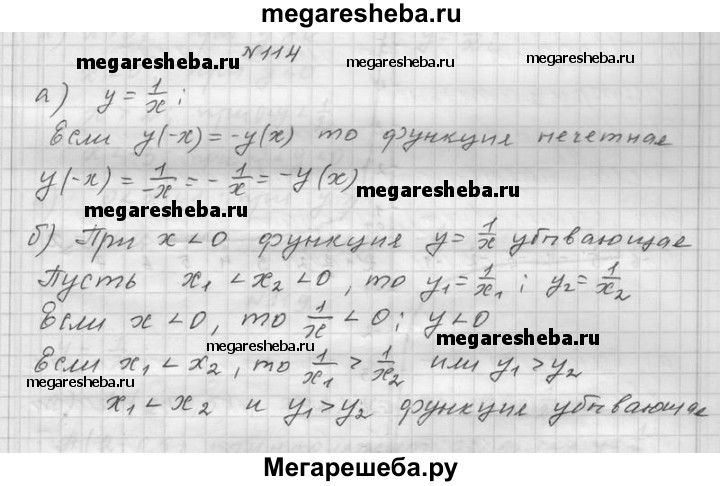 megaresheba.ru
№114
megaresheba.ru megaresheba.ru
а) y = 1/x ;
Если y(-x) = -y(x) то функция нечетная
y(-x) = 1/-x = - 1/x = -y(x)
megaresheba.ru
megaresheba.ru
б) При x < 0 функция y = 1/x убывающая
Пусть x₁ < x₂ < 0, то y₁ = 1/x₁ ; y₂ = 1/x₂
Если x < 0, то 1/x < 0; y < 0
megaresheba.ru
megaresheba.ru
Если x₁ < x₂, то 1/x₁ > 1/x₂ или y₁ > y₂
megaresheba.ru
x₁ < x₂ и y₁ > y₂ функция убывающая
megaresheba.ru
Мегарешеба.ру